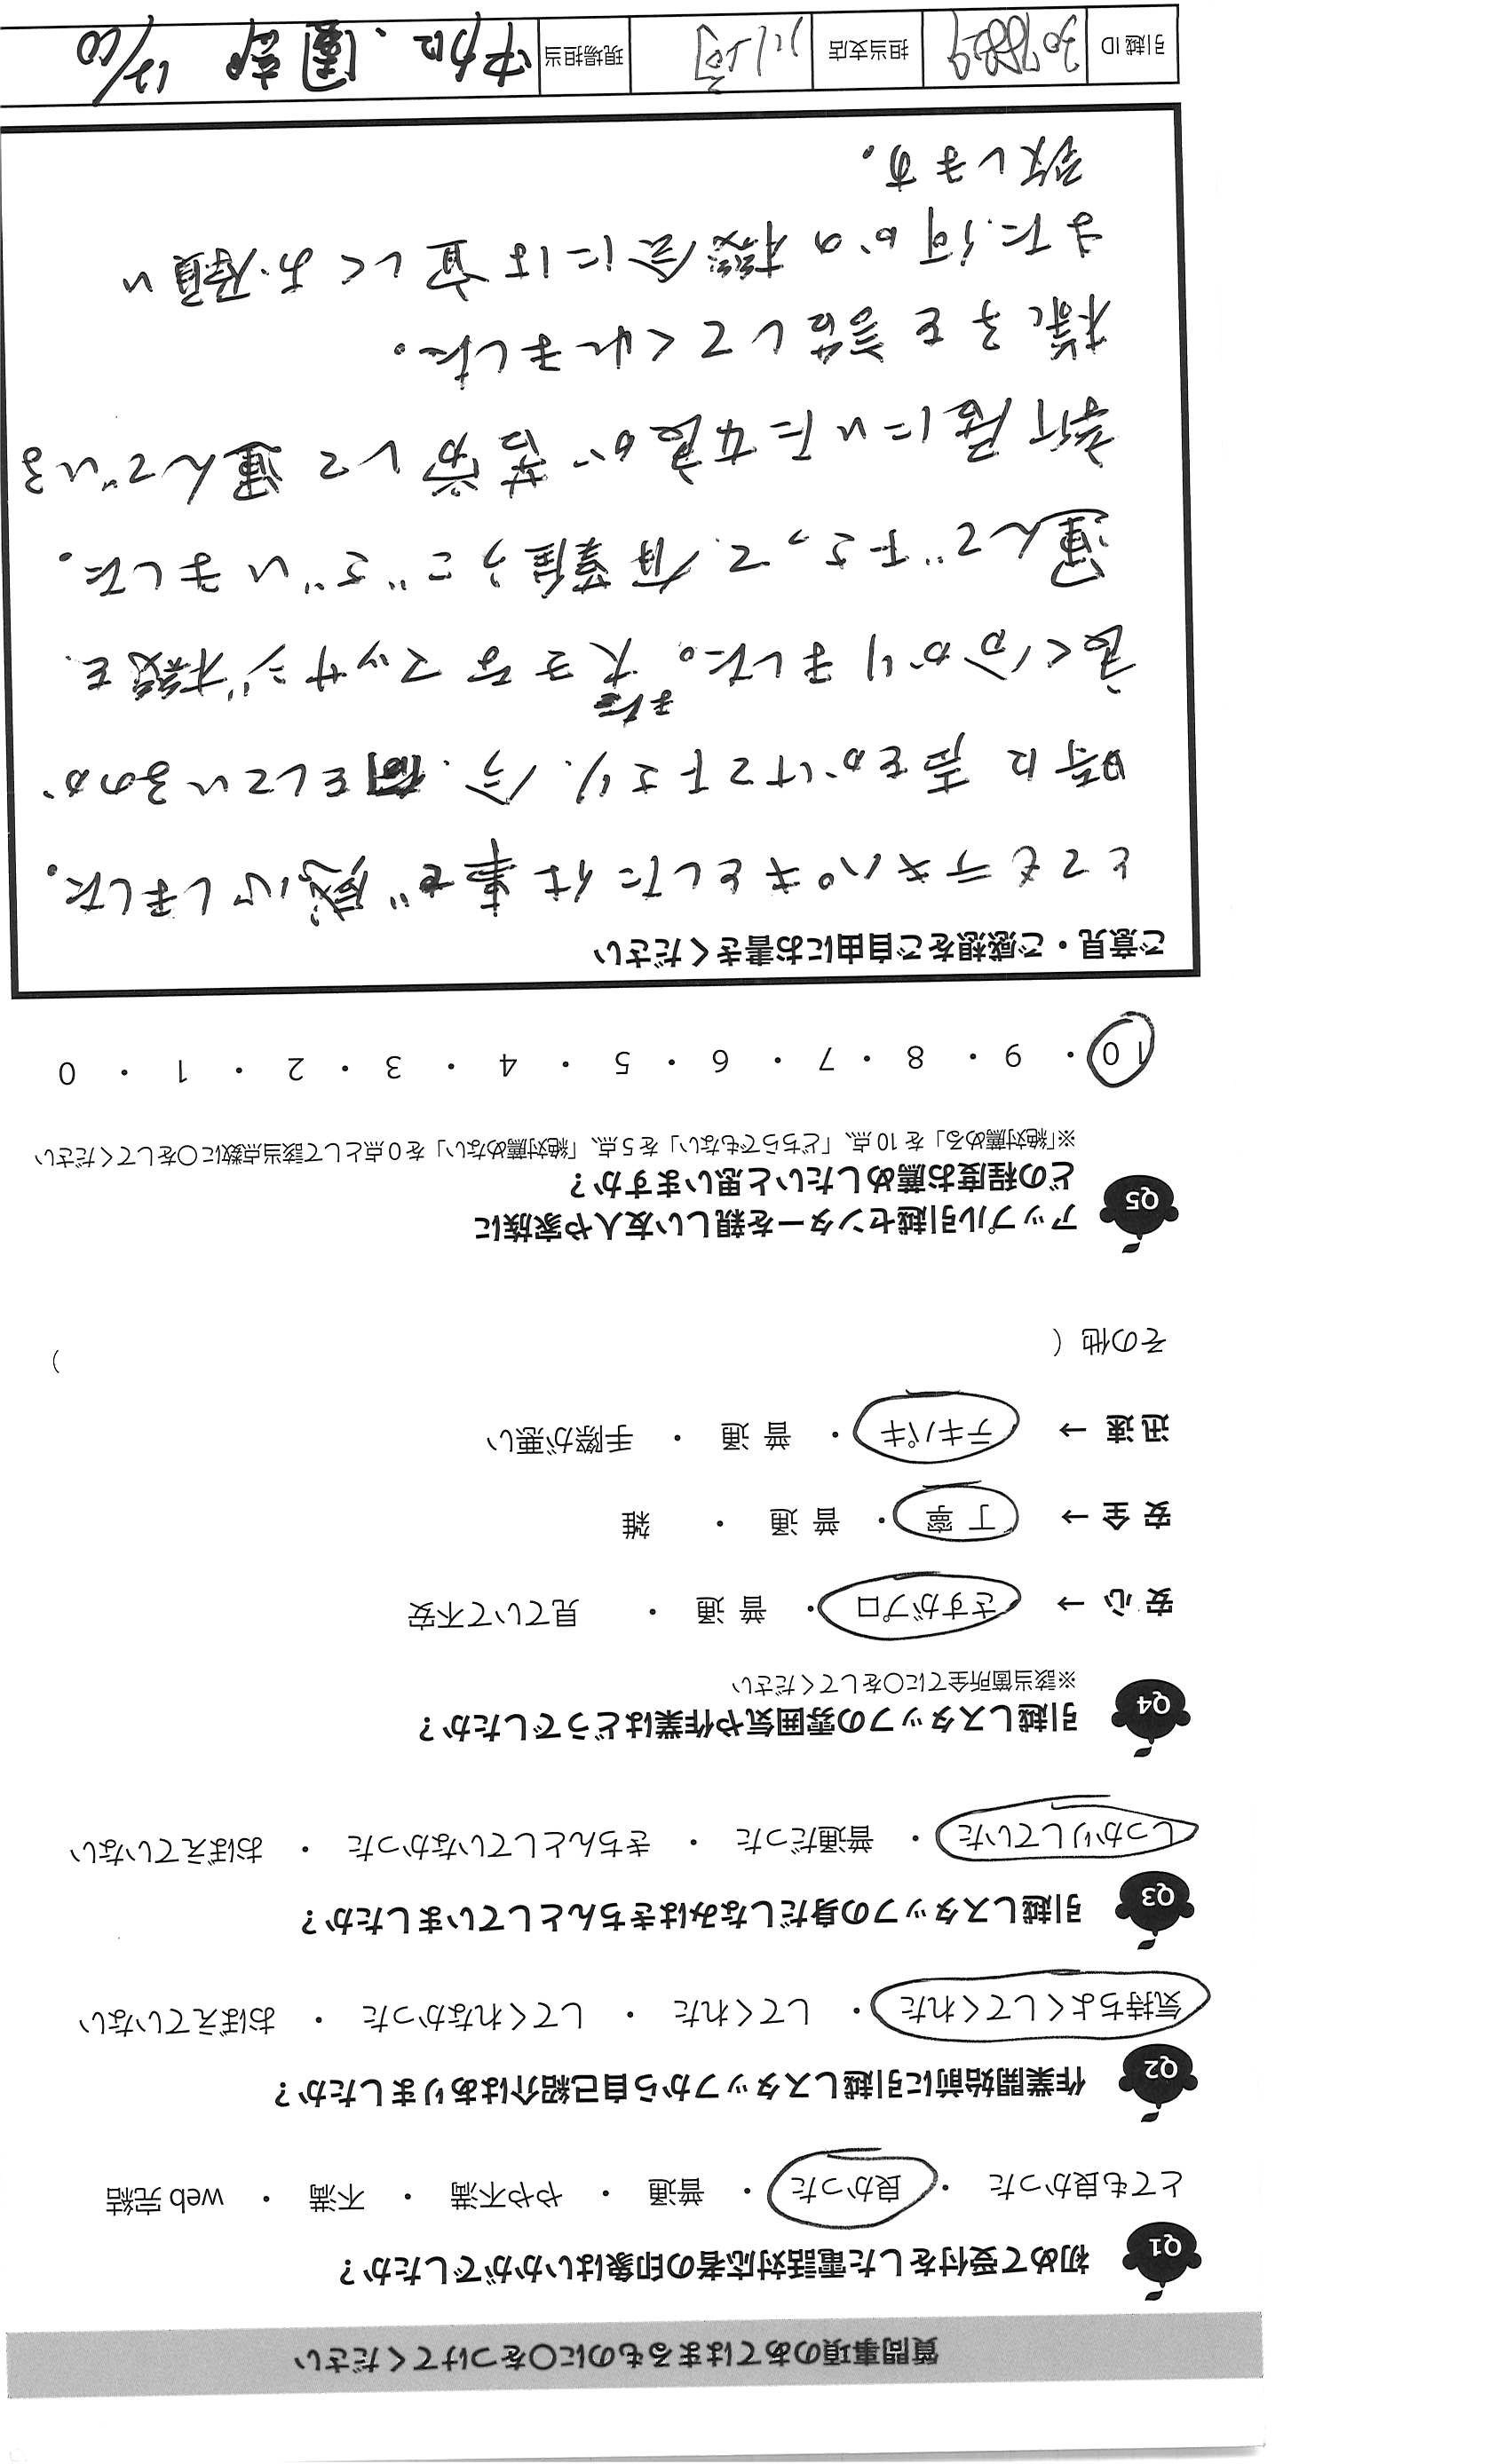 質問事項のあてはまるものに〇をつけてください
Q1 初めて受付をした電話対応者の印象はいかがでしたか？
とても良かった ・ 良かった ・ 普通 ・ やや不満 ・ 不満 ・ web 完結
Q2 作業開始前に引越しスタッフから自己紹介はありましたか？
気持ちよくしてくれた ・ してくれた ・ してくれなかった ・ おぼえていない
Q3 引越しスタッフの身だしなみはきちんとしていましたか？
しっかりしていた ・ 普通だった ・ きちんとしていなかった ・ おぼえていない
Q4 引越しスタッフの雰囲気や作業はどうでしたか？
※該当箇所全てに〇をしてください
安 心 → さすがプロ ・ 普 通 ・ 見ていて不安
安 全 → 丁 寧 ・ 普 通 ・ 雑
迅 速 → テキパキ ・ 普 通 ・ 手際が悪い
その他（ ）
Q5 アップル引越センターを親しい友人や家族に
どの程度お薦めしたいと思いますか？
※「絶対薦める」を 10 点、「どちらでもない」を 5 点、「絶対薦めない」を 0 点として該当点数に〇をしてください
10 ・ 9 ・ 8 ・ 7 ・ 6 ・ 5 ・ 4 ・ 3 ・ 2 ・ 1 ・ 0
ご意見・ご感想をご自由にお書きください
とてもテキパキとした仕事で感心しました。
時に声をかけて下さり、今、何をしているのか
良く分かりました。また大きなマッサージ機を
運んで下さって有難うございました。
新居にいた女良が苦労して運んでいる
様子を話してくれました。
また何かの機会には宜しくお願い
致します。
引越 ID 担当支店 現場担当 12/10